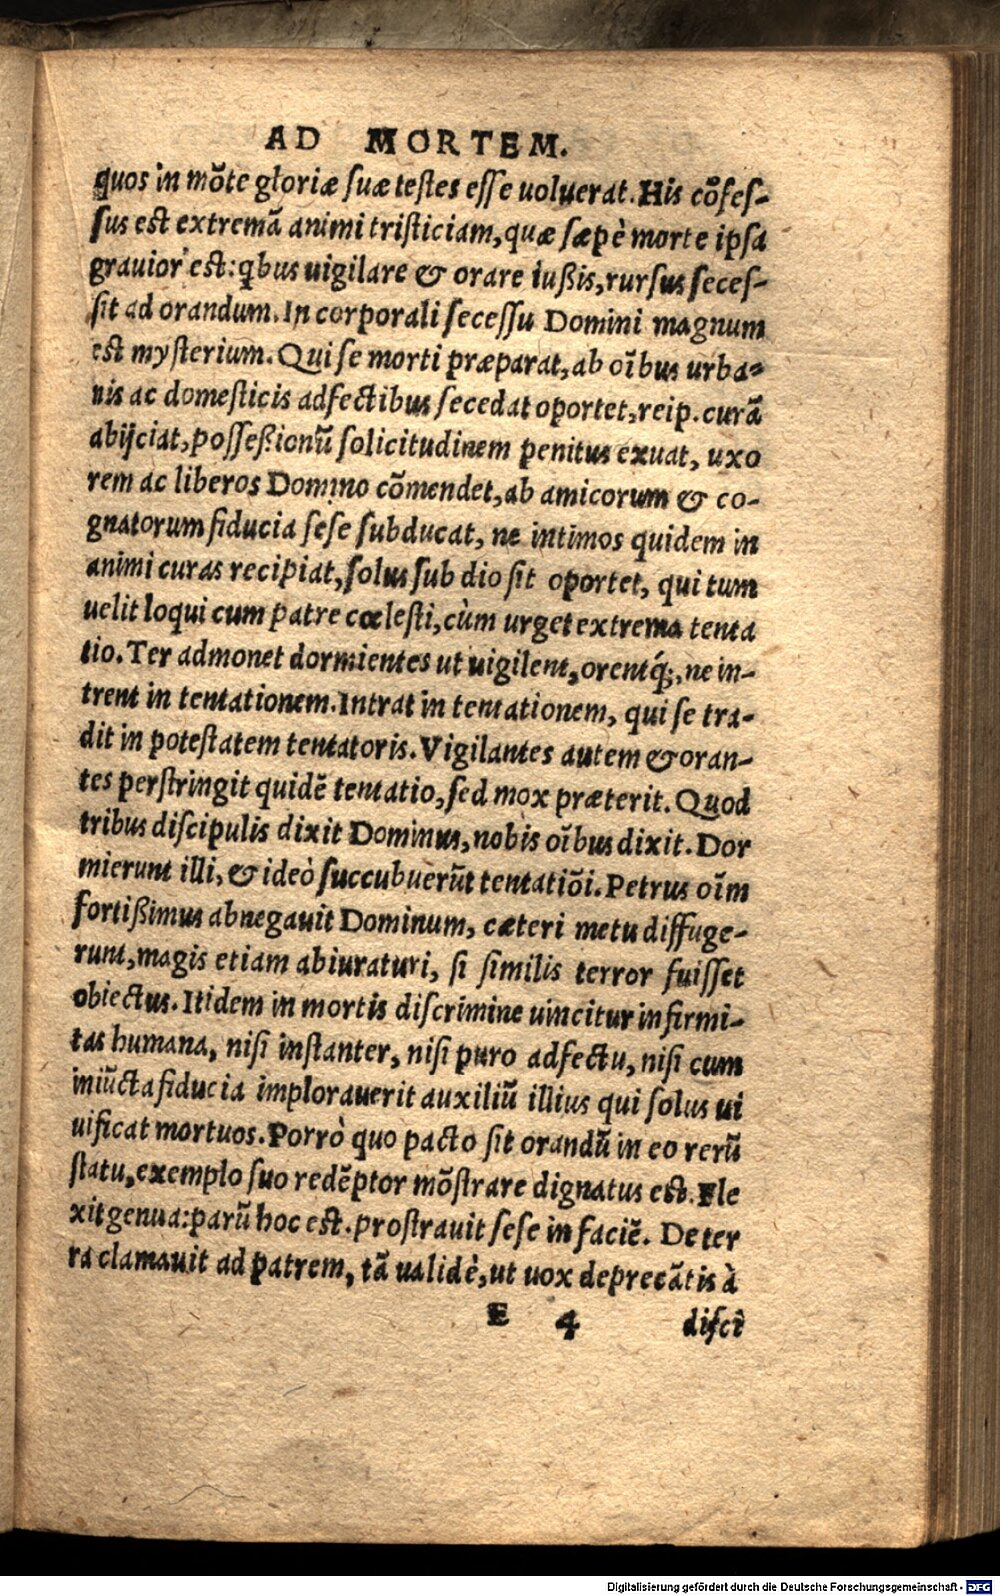 AD MORTEM.
quos in mõte gloriæ suæ testes esse uoluerat. His cõfes-
sus est extremã animi tristiciam, quæ sæpè morte ipsa
grauior est: qbus uigilare & orare iußis, rursus seces-
sit ad orandum. In corporali secessu Domini magnum
est mysterium. Qui se morti præparat, ab oĩbus urba-
nis ac domesticis adfectibus secedat oportet, reip. curã
abijciat, possessionũ solicitudinem penitus exuat, uxo
rem ac liberos Domino cõmendet, ab amicorum & co-
gnatorum fiducia sese subducat, ne intimos quidem in
animi curas recipiat, solus sub dio sit oportet, qui tum
uelit loqui cum patre cœlesti, cùm urget extrema tenta
tio. Ter admonet dormientes ut uigilent, orentq́;, ne in-
trent in tentationem. Intrat in tentationem, qui se tra-
dit in potestatem tentatoris. Vigilantes autem & oran-
tes perstringit quidẽ tentatio, sed mox præterit. Quod
tribus discipulis dixit Dominus, nobis oĩbus dixit. Dor
mierunt illi, & ideò succubuerũt tentatiõi. Petrus oĩm
fortißimus abnegauit Dominum, cæteri metu diffuge-
runt, magis etiam abiuraturi, si similis terror fuisset
obiectus. Itidem in mortis discrimine uincitur infirmi-
tas humana, nisi instanter, nisi puro adfectu, nisi cum
iniũcta fiducia implorauerit auxiliũ illius qui solus ui
uificat mortuos. Porrò quo pacto sit orandũ in eo rerũ
statu, exemplo suo redẽptor mõstrare dignatus est. Fle
xit genua: parũ hoc est. prostrauit sese in faciẽ. De ter
ra clamauit ad patrem, tã ualidè, ut uox deprecãtis à
E 4 disci
Digitalisierung gefördert durch die Deutsche Forschungsgemeinschaft - DFG